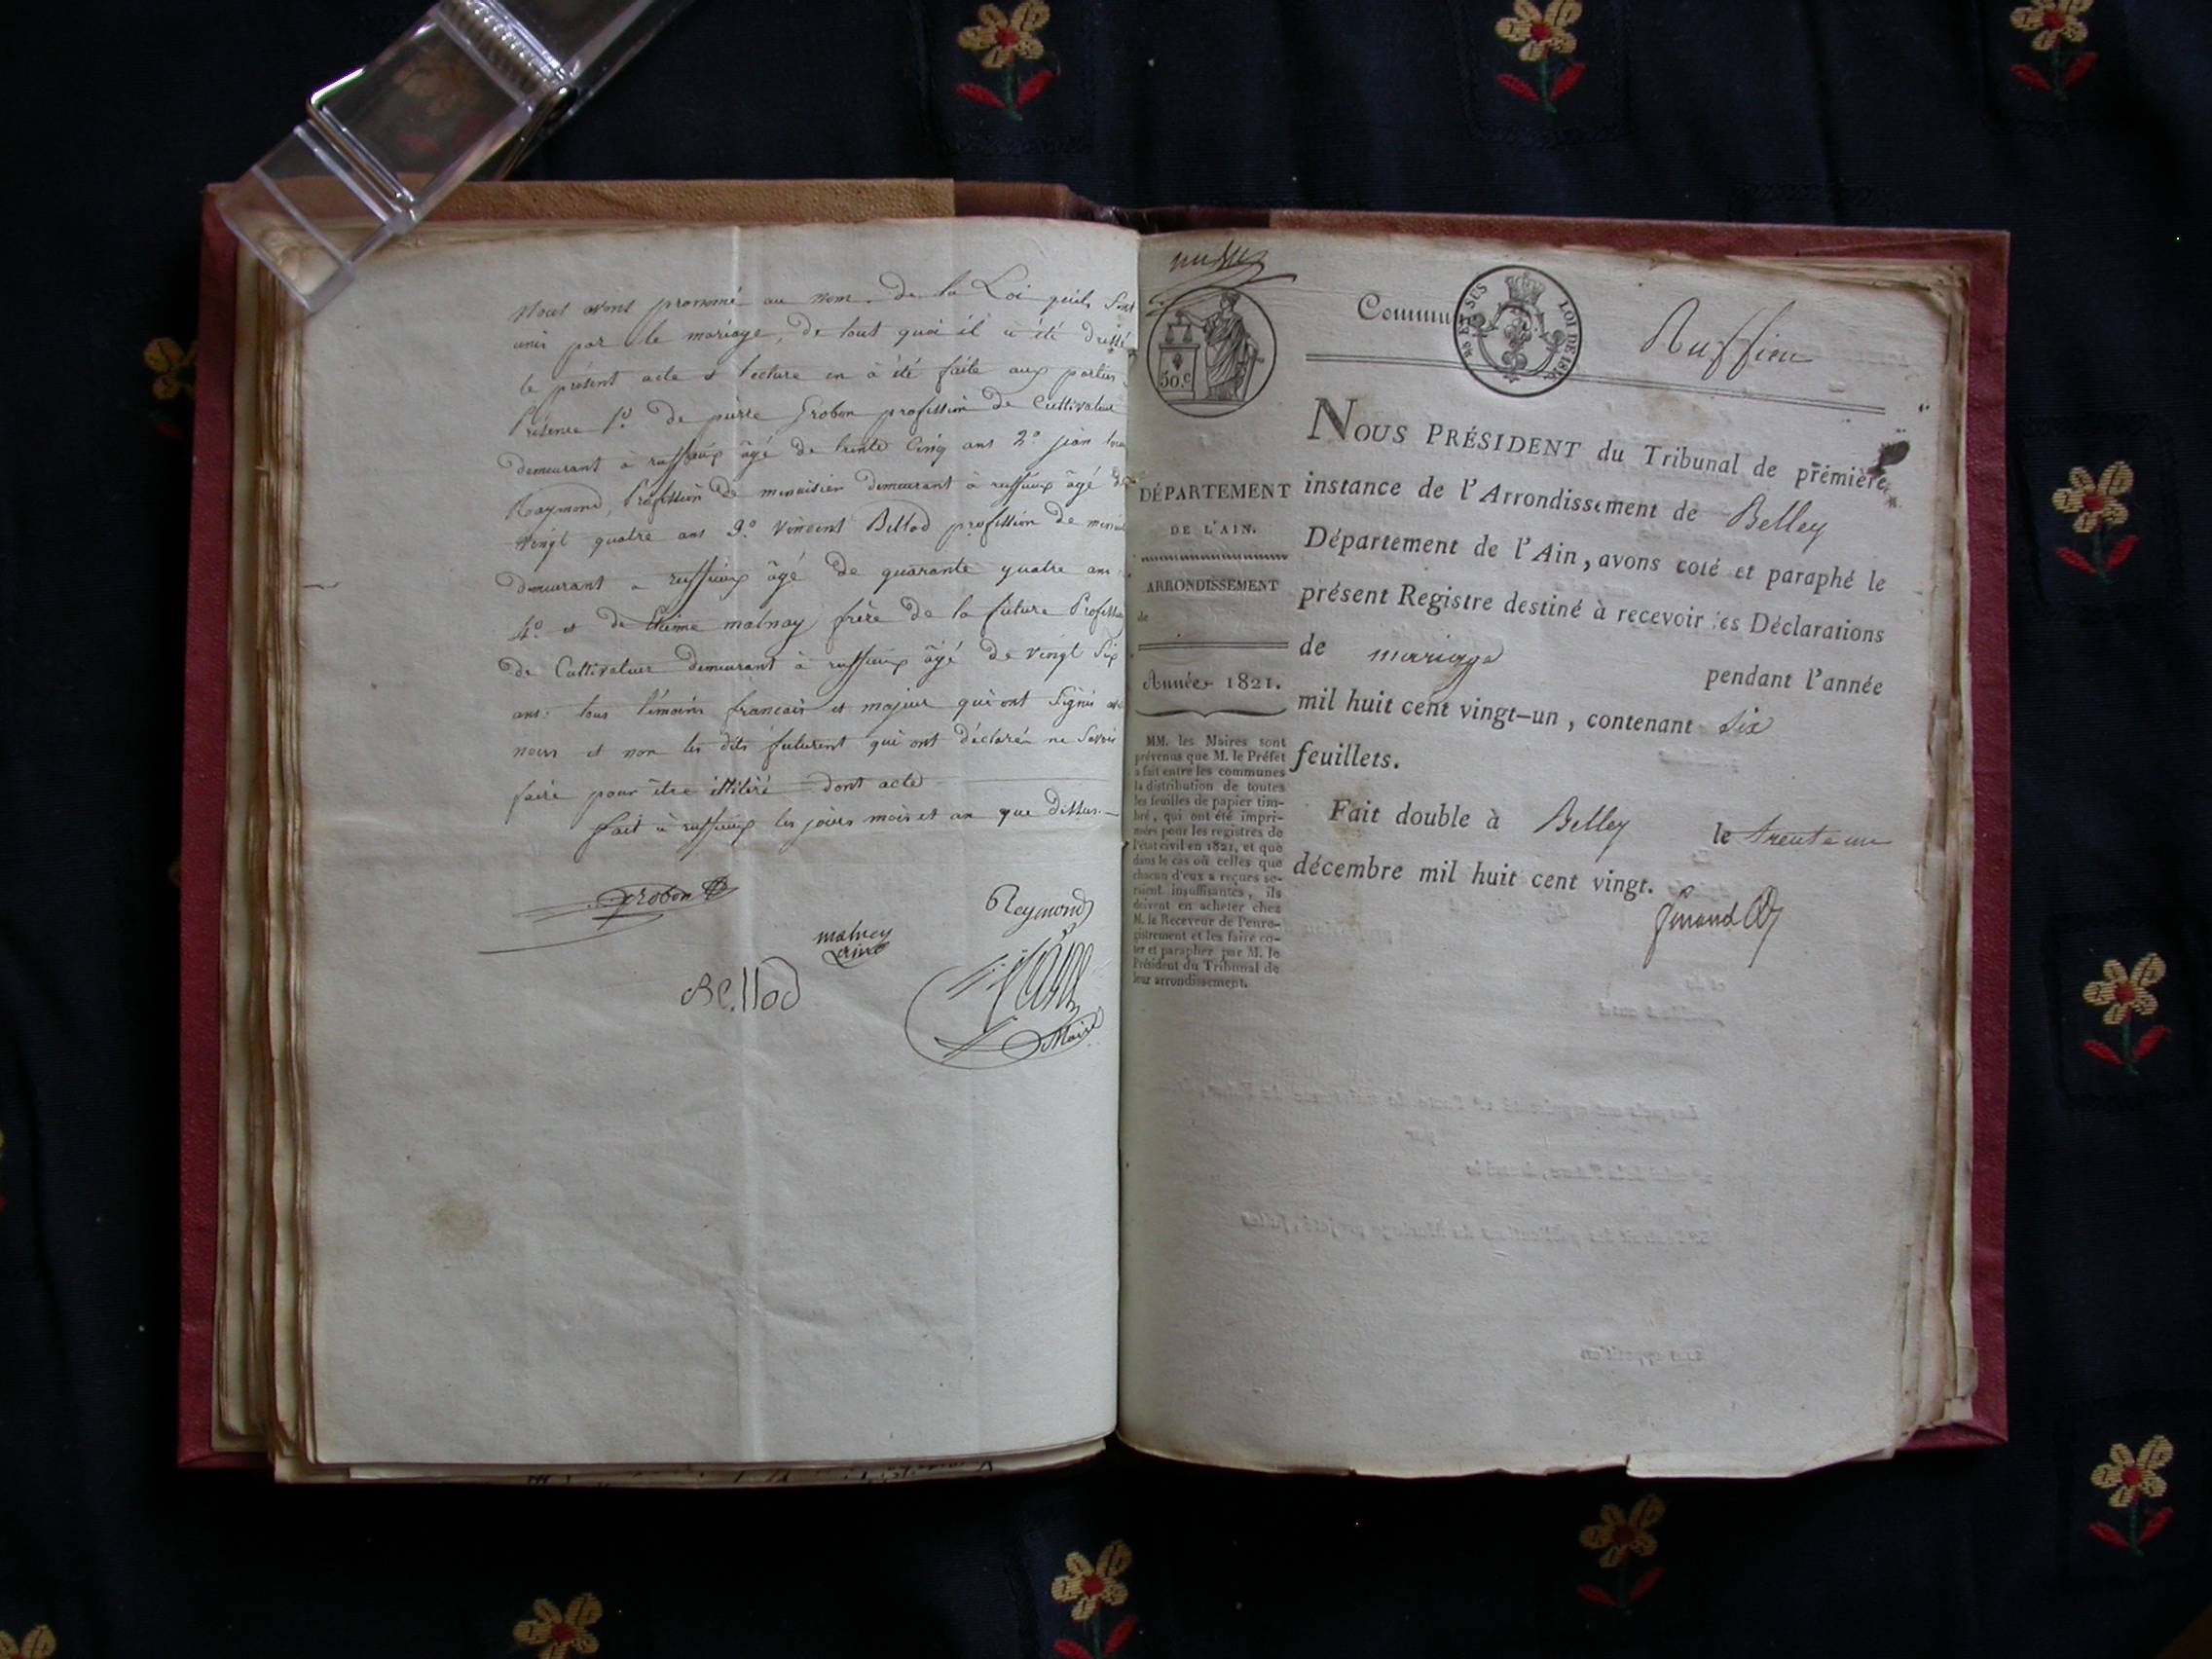 Nous avons prononcé au nom de la Loi quils sont
unis par le mariage, de tout quoi il à été dressé
le présent acte & lecture en à été faite aux parties
Présence 1.º de pierre Grobon profession de Cultivateur
demeurant à ruffieux âgé de trente Cinq ans 2.º jean
Raymond, Profession de menuisier demeurant à ruffieux âgé de
vingt quatre ans 3.º vincent Bellod profession de
demeurant a ruffieux âgé de quarante quatre ans
4.º et de malnay frère de la future Profession
de Cultivateur demeurant à ruffieux âgé de vingt Six
ans: tous témoins francais et majeur qui ont Signés avec
nous et non les dits futurent qui ont déclarés ne Savoir
faire pour être illitéré dont acte
fait à ruffieux les jours mois et an que dessus.
Grobon
Reymond
malney
Bellod
Maire
50.c
Commu
LOI DE 1816
Ruffieu
DÉPARTEMENT
DE L'AIN.
ARRONDISSEMENT
de
Année 1821.
MM. les Maires sont
prévenus que M. le Préfet
a fait entre les communes
la distribution de toutes
les feuilles de papier tim-
bré, qui ont été impri-
mées pour les registres de
l'état civil en 1821, et que
dans le cas où celles que
chacun d'eux a reçues se-
roient insuffisantes, ils
doivent en acheter chez
M. le Receveur de l'enre-
gistrement et les faire co-
ter et parapher par M. le
Président du Tribunal de
leur arrondissement.
NOUS PRÉSIDENT du Tribunal de première
instance de l'Arrondissement de Belley
Département de l'Ain, avons coté et paraphé le
présent Registre destiné à recevoir les Déclarations
de mariage pendant l'année
mil huit cent vingt-un, contenant six
feuillets.
Fait double à Belley le trente un
décembre mil huit cent vingt.